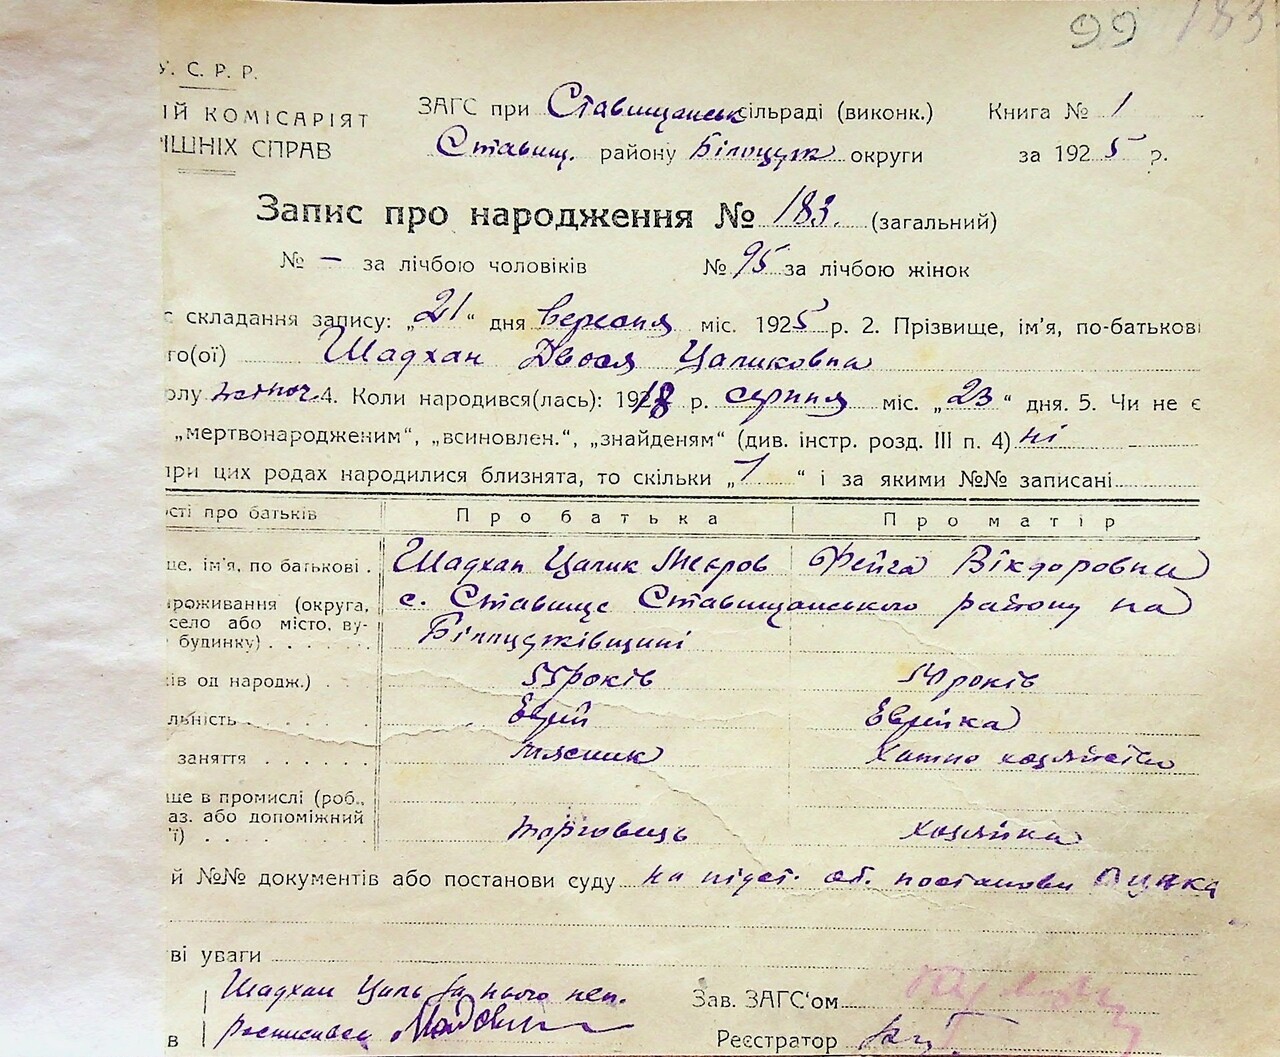 99 183
У. С. Р. Р.
ІЙ КОМІСАРІЯТ
ІШНІХ СПРАВ
ЗАГС при Ставищанськ сільраді (виконк.) Книга № 1
Ставищ. району Білоцерк округи за 1925 р.
Запис про народження № 183. (загальний)
№ — за лічбою чоловіків № 95 за лічбою жінок
с складання запису: „21“ дня вересня міс. 1925 р. 2. Прізвище, ім'я, по-батькові
го(ої) Шадхан Двося Цаликовна
олу жіноч. 4. Коли народився(лась): 1918 р. серпня міс. „23“ дня. 5. Чи не є
„мертвонародженим“, „всиновлен.“, „знайденям“ (див. інстр. розд. III п. 4) ні
при цих родах народилися близнята, то скільки „1“ і за якими №№ записані
ості про батьків Про батька Про матір
ще, ім'я, по батькові . Шадхан Цалик Меєров Фейга Вікторовна
проживання (округа, с. Ставище Ставищанського району на
село або місто, ву-
будинку) . . . . . . Білоцерківщині
ків од народж.) 55 років 54 років
льність . . . . . . Еврей Еврейка
заняття . . . . . . мясник Хатнє хазяйство
ще в промислі (роб.,
аз. або допоміжний
ї) . . . . торговець хазяйка
й №№ документів або постанови суду на підст. постанови
ві уваги
Шадхан Цаль за нього неп.
росписався
Зав. ЗАГС'ом
в Реєстратор